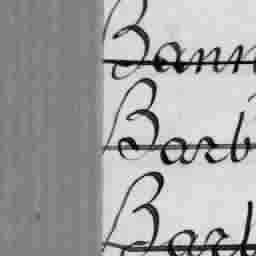 Bann
Barb
Barb